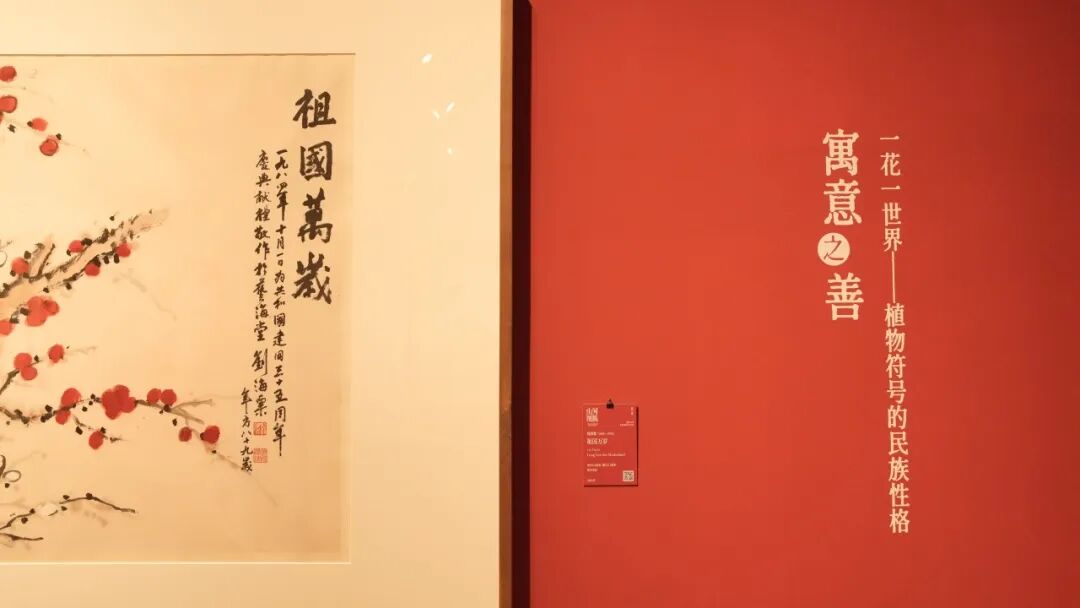 祖國萬歲
一九八四年十月一日為共和國建國三十五周年
慶典献禮敬作於藝海堂 劉海粟
年方八十九歲
一花一世界——植物符号的民族性格
寓意之善
山河
祖国万岁
Long Live the Motherland